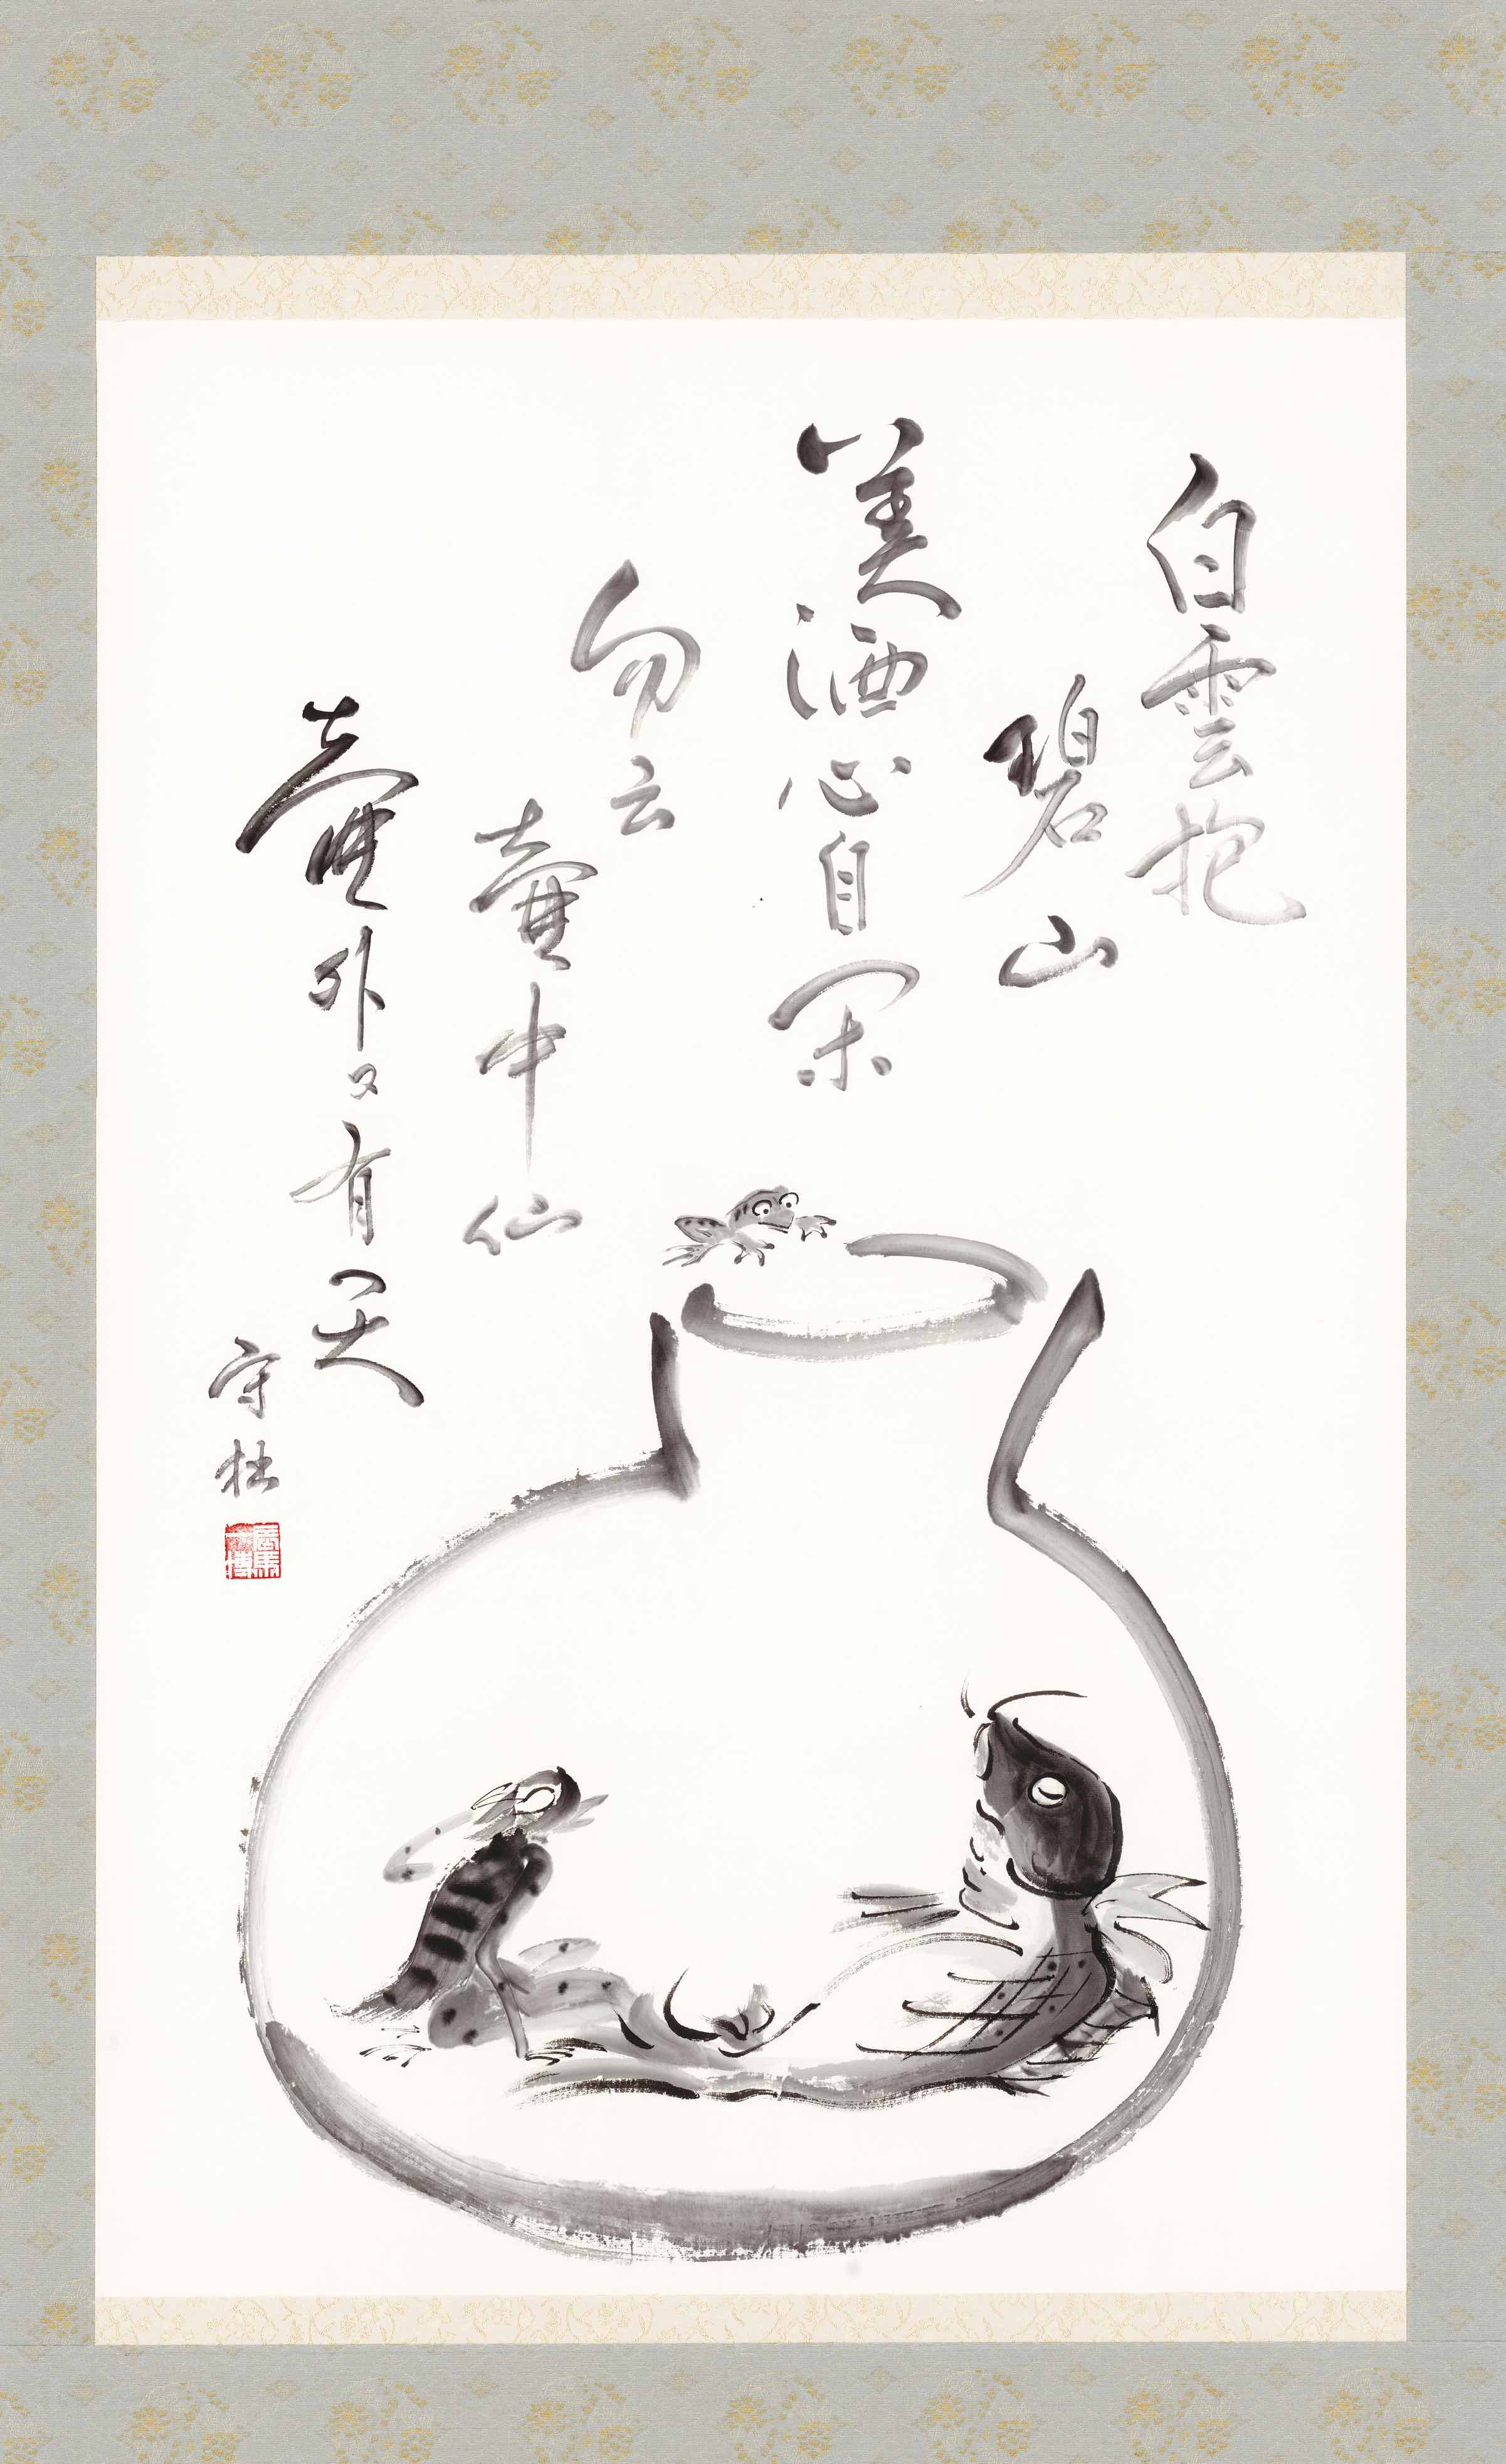 白雲抱
碧山
美酒心自閑
勿云
壷中仙
壷外又有一天
守拙